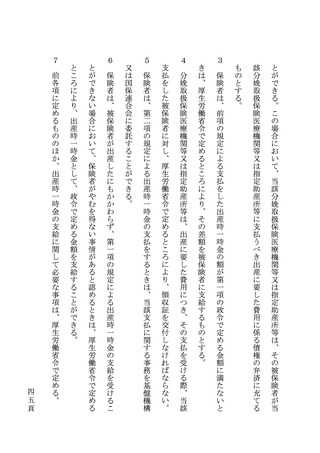 とができる。この場合において、当該分娩取扱保険医療機関等又は指定助産所等は、その被保険者が当
該分娩取扱保険医療機関等又は指定助産所等に支払うべき出産に要した費用に係る債権の弁済に充てる
ものとする。
3　保険者は、前項の規定による支払をした出産時一時金の額が第一項の政令で定める金額に満たないと
きは、厚生労働省令で定めるところにより、その差額を被保険者に支給するものとする。
4　分娩取扱保険医療機関等又は指定助産所等は、出産に要した費用につき、その支払を受ける際、当該
支払をした被保険者に対し、厚生労働省令で定めるところにより、領収証を交付しなければならない。
5　保険者は、第二項の規定による出産時一時金の支払をするときは、当該支払に関する事務を基盤機構
又は国保連合会に委託することができる。
6　保険者は、被保険者が出産したにもかかわらず、第一項の規定による出産時一時金の支給を受けるこ
とができない場合において、保険者がやむを得ない事情があると認めるときは、厚生労働省令で定める
ところにより、出産時一時金として、政令で定める金額を支給することができる。
7　前各項に定めるもののほか、出産時一時金の支給に関して必要な事項は、厚生労働省令で定める。
四五頁